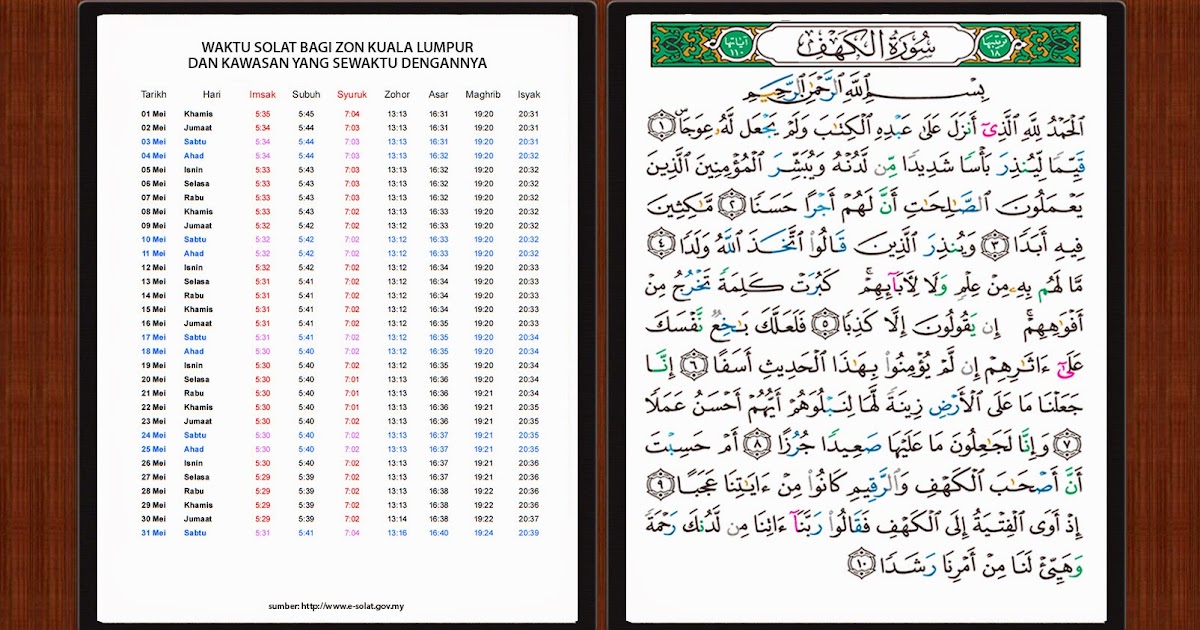 WAKTU SOLAT BAGI ZON KUALA LUMPUR
DAN KAWASAN YANG SEWAKTU DENGANNYA
Tarikh Hari Imsak Subuh Syuruk Zohor Asar Maghrib Isyak
01 Mei Khamis 5:35 5:45 7:04 13:13 16:31 19:20 20:31
02 Mei Jumaat 5:34 5:44 7:03 13:13 16:31 19:20 20:31
03 Mei Sabtu 5:34 5:44 7:03 13:13 16:31 19:20 20:31
04 Mei Ahad 5:34 5:44 7:03 13:13 16:32 19:20 20:32
05 Mei Isnin 5:33 5:43 7:03 13:13 16:32 19:20 20:32
06 Mei Selasa 5:33 5:43 7:03 13:13 16:32 19:20 20:32
07 Mei Rabu 5:33 5:43 7:03 13:13 16:32 19:20 20:32
08 Mei Khamis 5:33 5:43 7:02 13:13 16:33 19:20 20:32
09 Mei Jumaat 5:32 5:42 7:02 13:12 16:33 19:20 20:32
10 Mei Sabtu 5:32 5:42 7:02 13:12 16:33 19:20 20:32
11 Mei Ahad 5:32 5:42 7:02 13:12 16:33 19:20 20:32
12 Mei Isnin 5:32 5:42 7:02 13:12 16:34 19:20 20:33
13 Mei Selasa 5:31 5:41 7:02 13:12 16:34 19:20 20:33
14 Mei Rabu 5:31 5:41 7:02 13:12 16:34 19:20 20:33
15 Mei Khamis 5:31 5:41 7:02 13:12 16:34 19:20 20:33
16 Mei Jumaat 5:31 5:41 7:02 13:12 16:35 19:20 20:33
17 Mei Sabtu 5:31 5:41 7:02 13:12 16:35 19:20 20:34
18 Mei Ahad 5:30 5:40 7:02 13:12 16:35 19:20 20:34
19 Mei Isnin 5:30 5:40 7:02 13:13 16:35 19:20 20:34
20 Mei Selasa 5:30 5:40 7:01 13:13 16:36 19:20 20:34
21 Mei Rabu 5:30 5:40 7:01 13:13 16:36 19:21 20:34
22 Mei Khamis 5:30 5:40 7:01 13:13 16:36 19:21 20:35
23 Mei Jumaat 5:30 5:40 7:02 13:13 16:36 19:21 20:35
24 Mei Sabtu 5:30 5:40 7:02 13:13 16:37 19:21 20:35
25 Mei Ahad 5:30 5:40 7:02 13:13 16:37 19:21 20:35
26 Mei Isnin 5:30 5:40 7:02 13:13 16:37 19:21 20:36
27 Mei Selasa 5:29 5:39 7:02 13:13 16:38 19:21 20:36
28 Mei Rabu 5:29 5:39 7:02 13:13 16:38 19:22 20:36
29 Mei Khamis 5:29 5:39 7:02 13:13 16:38 19:22 20:36
30 Mei Jumaat 5:29 5:39 7:02 13:14 16:38 19:22 20:37
31 Mei Sabtu 5:31 5:41 7:04 13:16 16:40 19:24 20:39
sumber: http://www.e-solat.gov.my
ترتيبها ١٨ سُورَةُ الْكَهْفِ آياتها ١١٠
بِسْمِ اللَّهِ الرَّحْمَٰنِ الرَّحِيمِ
الْحَمْدُ لِلَّهِ الَّذِي أَنزَلَ عَلَىٰ عَبْدِهِ الْكِتَابَ وَلَمْ يَجْعَل لَّهُ عِوَجًا ۜ ١
قَيِّمًا لِّيُنذِرَ بَأْسًا شَدِيدًا مِّن لَّدُنْهُ وَيُبَشِّرَ الْمُؤْمِنِينَ الَّذِينَ
يَعْمَلُونَ الصَّالِحَاتِ أَنَّ لَهُمْ أَجْرًا حَسَنًا ٢ مَّاكِثِينَ
فِيهِ أَبَدًا ٣ وَيُنذِرَ الَّذِينَ قَالُوا اتَّخَذَ اللَّهُ وَلَدًا ٤
مَّا لَهُم بِهِ مِنْ عِلْمٍ وَلَا لِآبَائِهِمْ ۚ كَبُرَتْ كَلِمَةً تَخْرُجُ مِنْ
أَفْوَاهِهِمْ ۚ إِن يَقُولُونَ إِلَّا كَذِبًا ٥ فَلَعَلَّكَ بَاخِعٌ نَّفْسَكَ
عَلَىٰ آثَارِهِمْ إِن لَّمْ يُؤْمِنُوا بِهَٰذَا الْحَدِيثِ أَسَفًا ٦ إِنَّا
جَعَلْنَا مَا عَلَى الْأَرْضِ زِينَةً لَّهَا لِنَبْلُوَهُمْ أَيُّهُمْ أَحْسَنُ عَمَلًا
٧ وَإِنَّا لَجَاعِلُونَ مَا عَلَيْهَا صَعِيدًا جُرُزًا ٨ أَمْ حَسِبْتَ
أَنَّ أَصْحَابَ الْكَهْفِ وَالرَّقِيمِ كَانُوا مِنْ آيَاتِنَا عَجَبًا ٩
إِذْ أَوَى الْفِتْيَةُ إِلَى الْكَهْفِ فَقَالُوا رَبَّنَا آتِنَا مِن لَّدُنكَ رَحْمَةً
وَهَيِّئْ لَنَا مِنْ أَمْرِنَا رَشَدًا ١٠